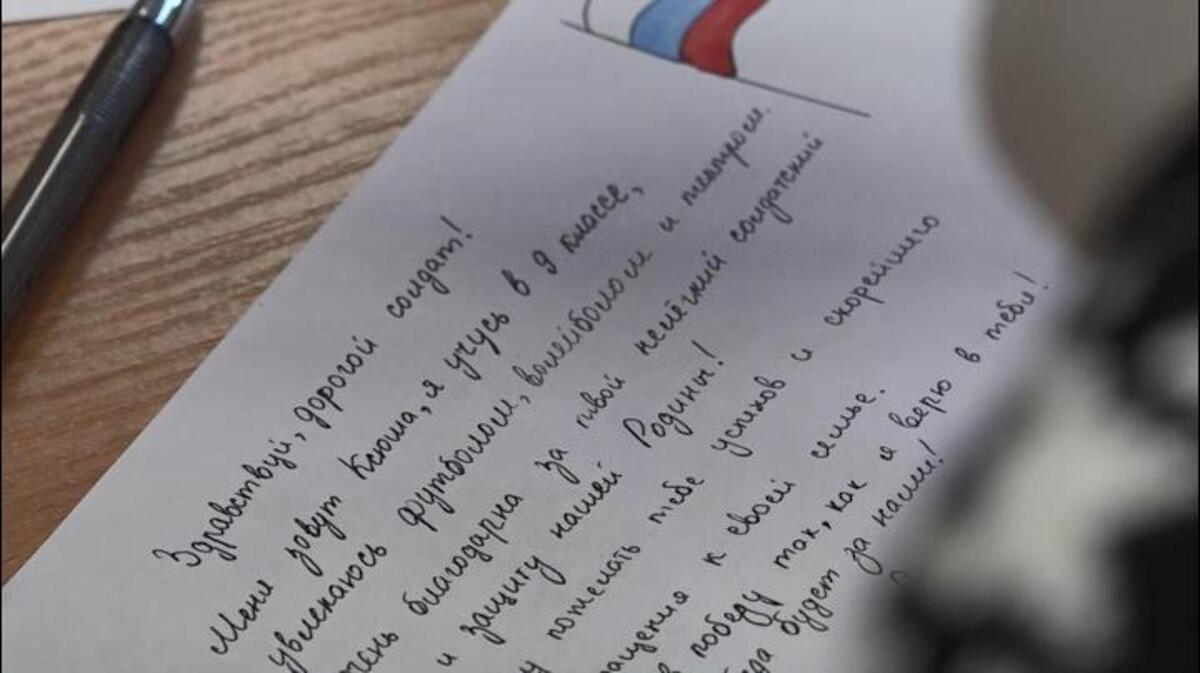 Здравствуй, дорогой солдат!
Меня зовут Ксюша, я учусь в 9 классе,
увлекаюсь футболом, волейболом и театром.
благодарна за твой нелёгкий солдатский
и защиту нашей Родины!
пожелать тебе успехов и скорейшего
к своей семье.
победу так, как я верю в тебя!
будет за нами!